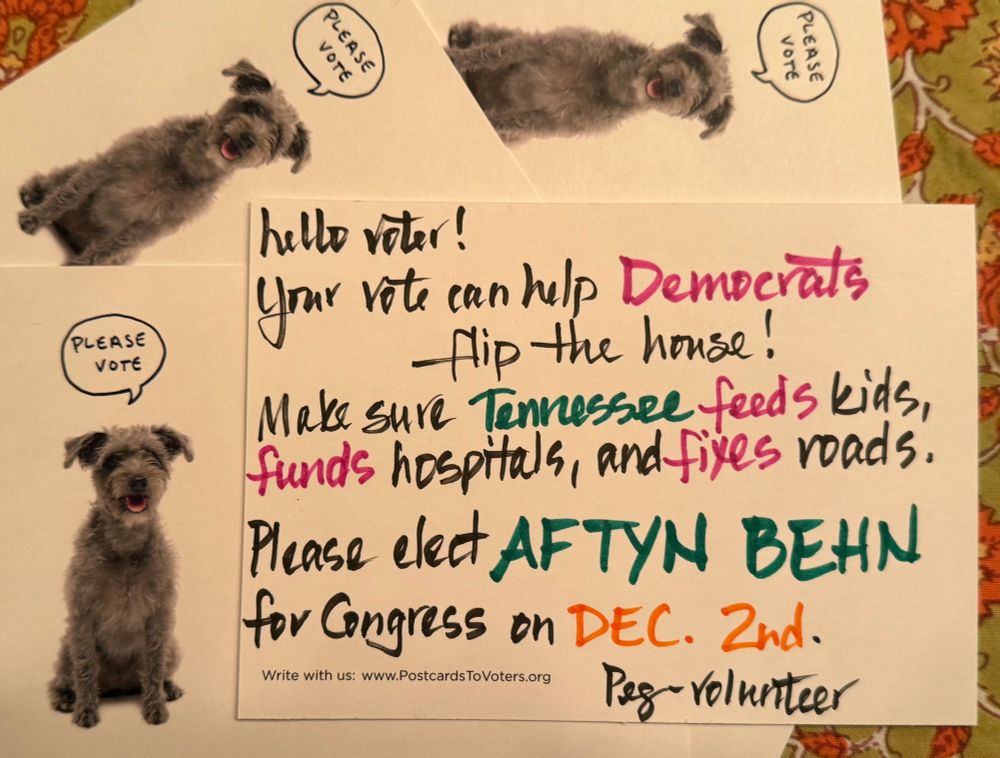 PLEASE
VOTE
PLEASE
VOTE
PLEASE
VOTE
hello voter!
Your vote can help Democrats
flip the house!
Make sure Tennessee feeds kids,
funds hospitals, and fixes roads.
Please elect AFTYN BEHN
for Congress on DEC. 2nd.
Write with us: www.PostcardsToVoters.org
Peg-volunteer